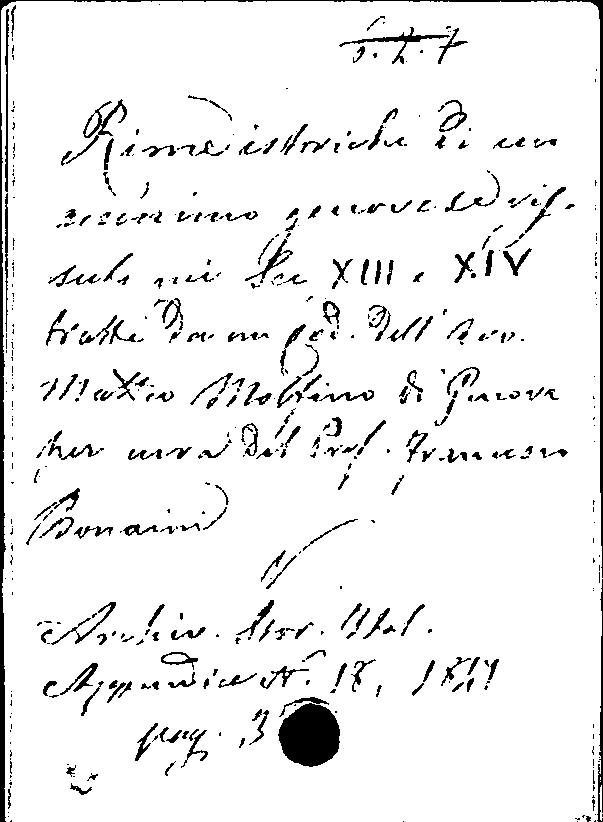 6. 2. 7
Rime istoriche di un
anonimo genovese vis-
suto nei Sec. XIII e XIV
tratte da un cod. dell' avv.
Matteo Molfino di Genova
per cura del Prof. Francesco
Bonaini
Archiv. Stor. Ital.
Appendice N. 18, 1847
pag. 3